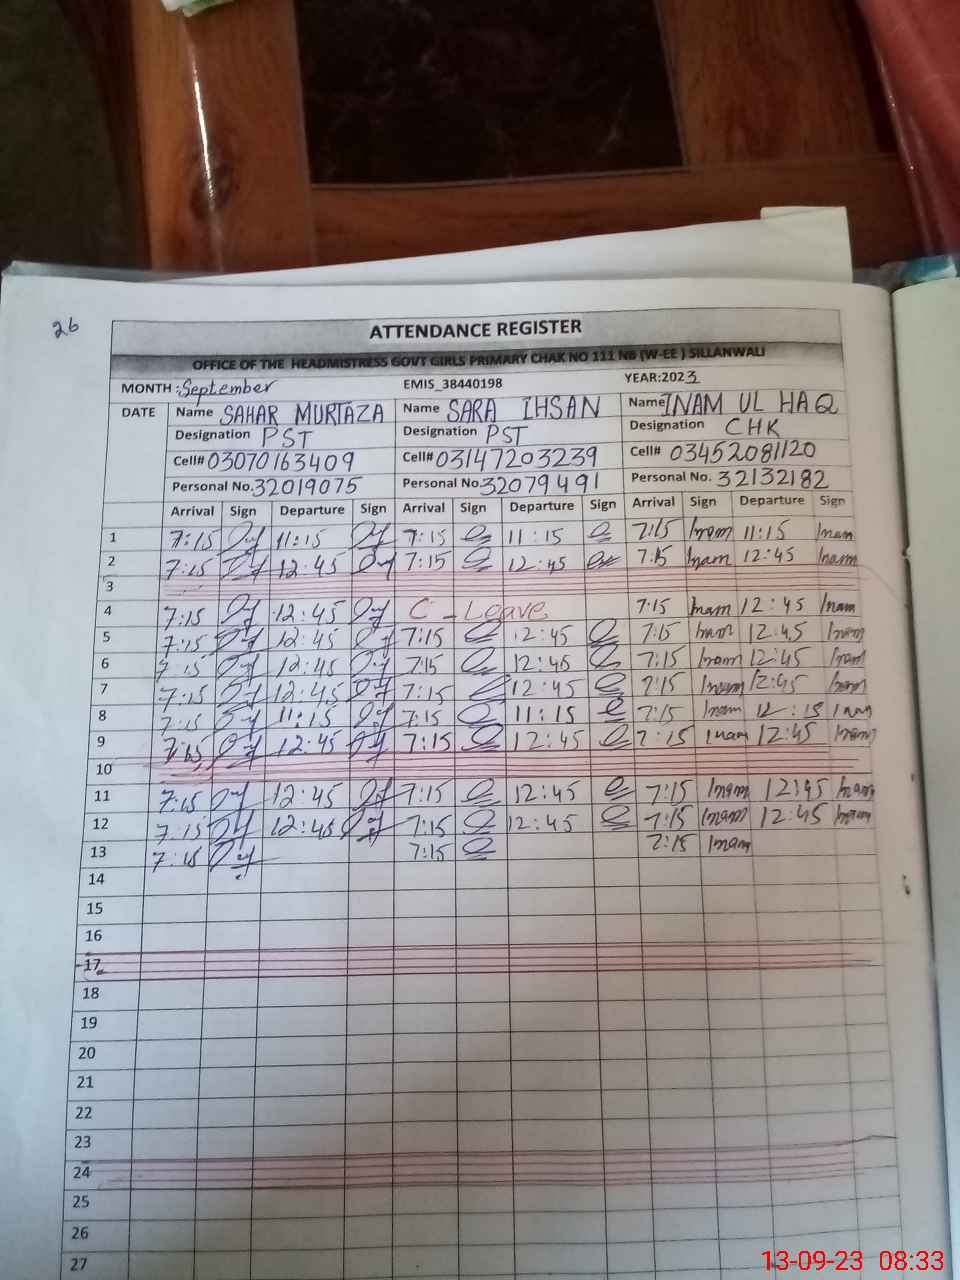 26
ATTENDANCE REGISTER
OFFICE OF THE HEADMISTRESS GOVT GIRLS PRIMARY CHAK NO 111 NB (W-EE ) SILLANWALI
MONTH : September EMIS_38440198 YEAR:2023
DATE Name SAHAR MURTAZA Name SARA IHSAN Name INAM UL HAQ
Designation PST Designation PST Designation CHK
Cell# 03070163409 Cell# 03147203239 Cell# 03452081120
Personal No. 32019075 Personal No. 32079491 Personal No. 32132182
Arrival Sign Departure Sign Arrival Sign Departure Sign Arrival Sign Departure Sign
1 7:15 11:15 7:15 11:15 7:15 Inam 11:15 Inam
2 7:15 12:45 7:15 12:45 7:15 Inam 12:45 Inam
3
4 7:15 12:45 C - Leave 7:15 Inam 12:45 Inam
5 7:15 12:45 7:15 12:45 7:15 Inam 12:45 Inam
6 7:15 12:45 7:15 12:45 7:15 Inam 12:45 Inam
7 7:15 12:45 7:15 12:45 7:15 Inam 12:45 Inam
8 7:15 11:15 7:15 11:15 7:15 Inam 12:15 Inam
9 7:15 12:45 7:15 12:45 7:15 Inam 12:45 Inam
10
11 7:15 12:45 7:15 12:45 7:15 Inam 12:45 Inam
12 7:15 12:45 7:15 12:45 7:15 Inam 12:45 Inam
13 7:15 7:15 7:15 Inam
14
15
16
17
18
19
20
21
22
23
24
25
26
27
13-09-23 08:33